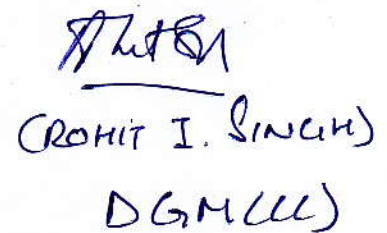 (ROHIT I. SINGH)
DGM(CC)